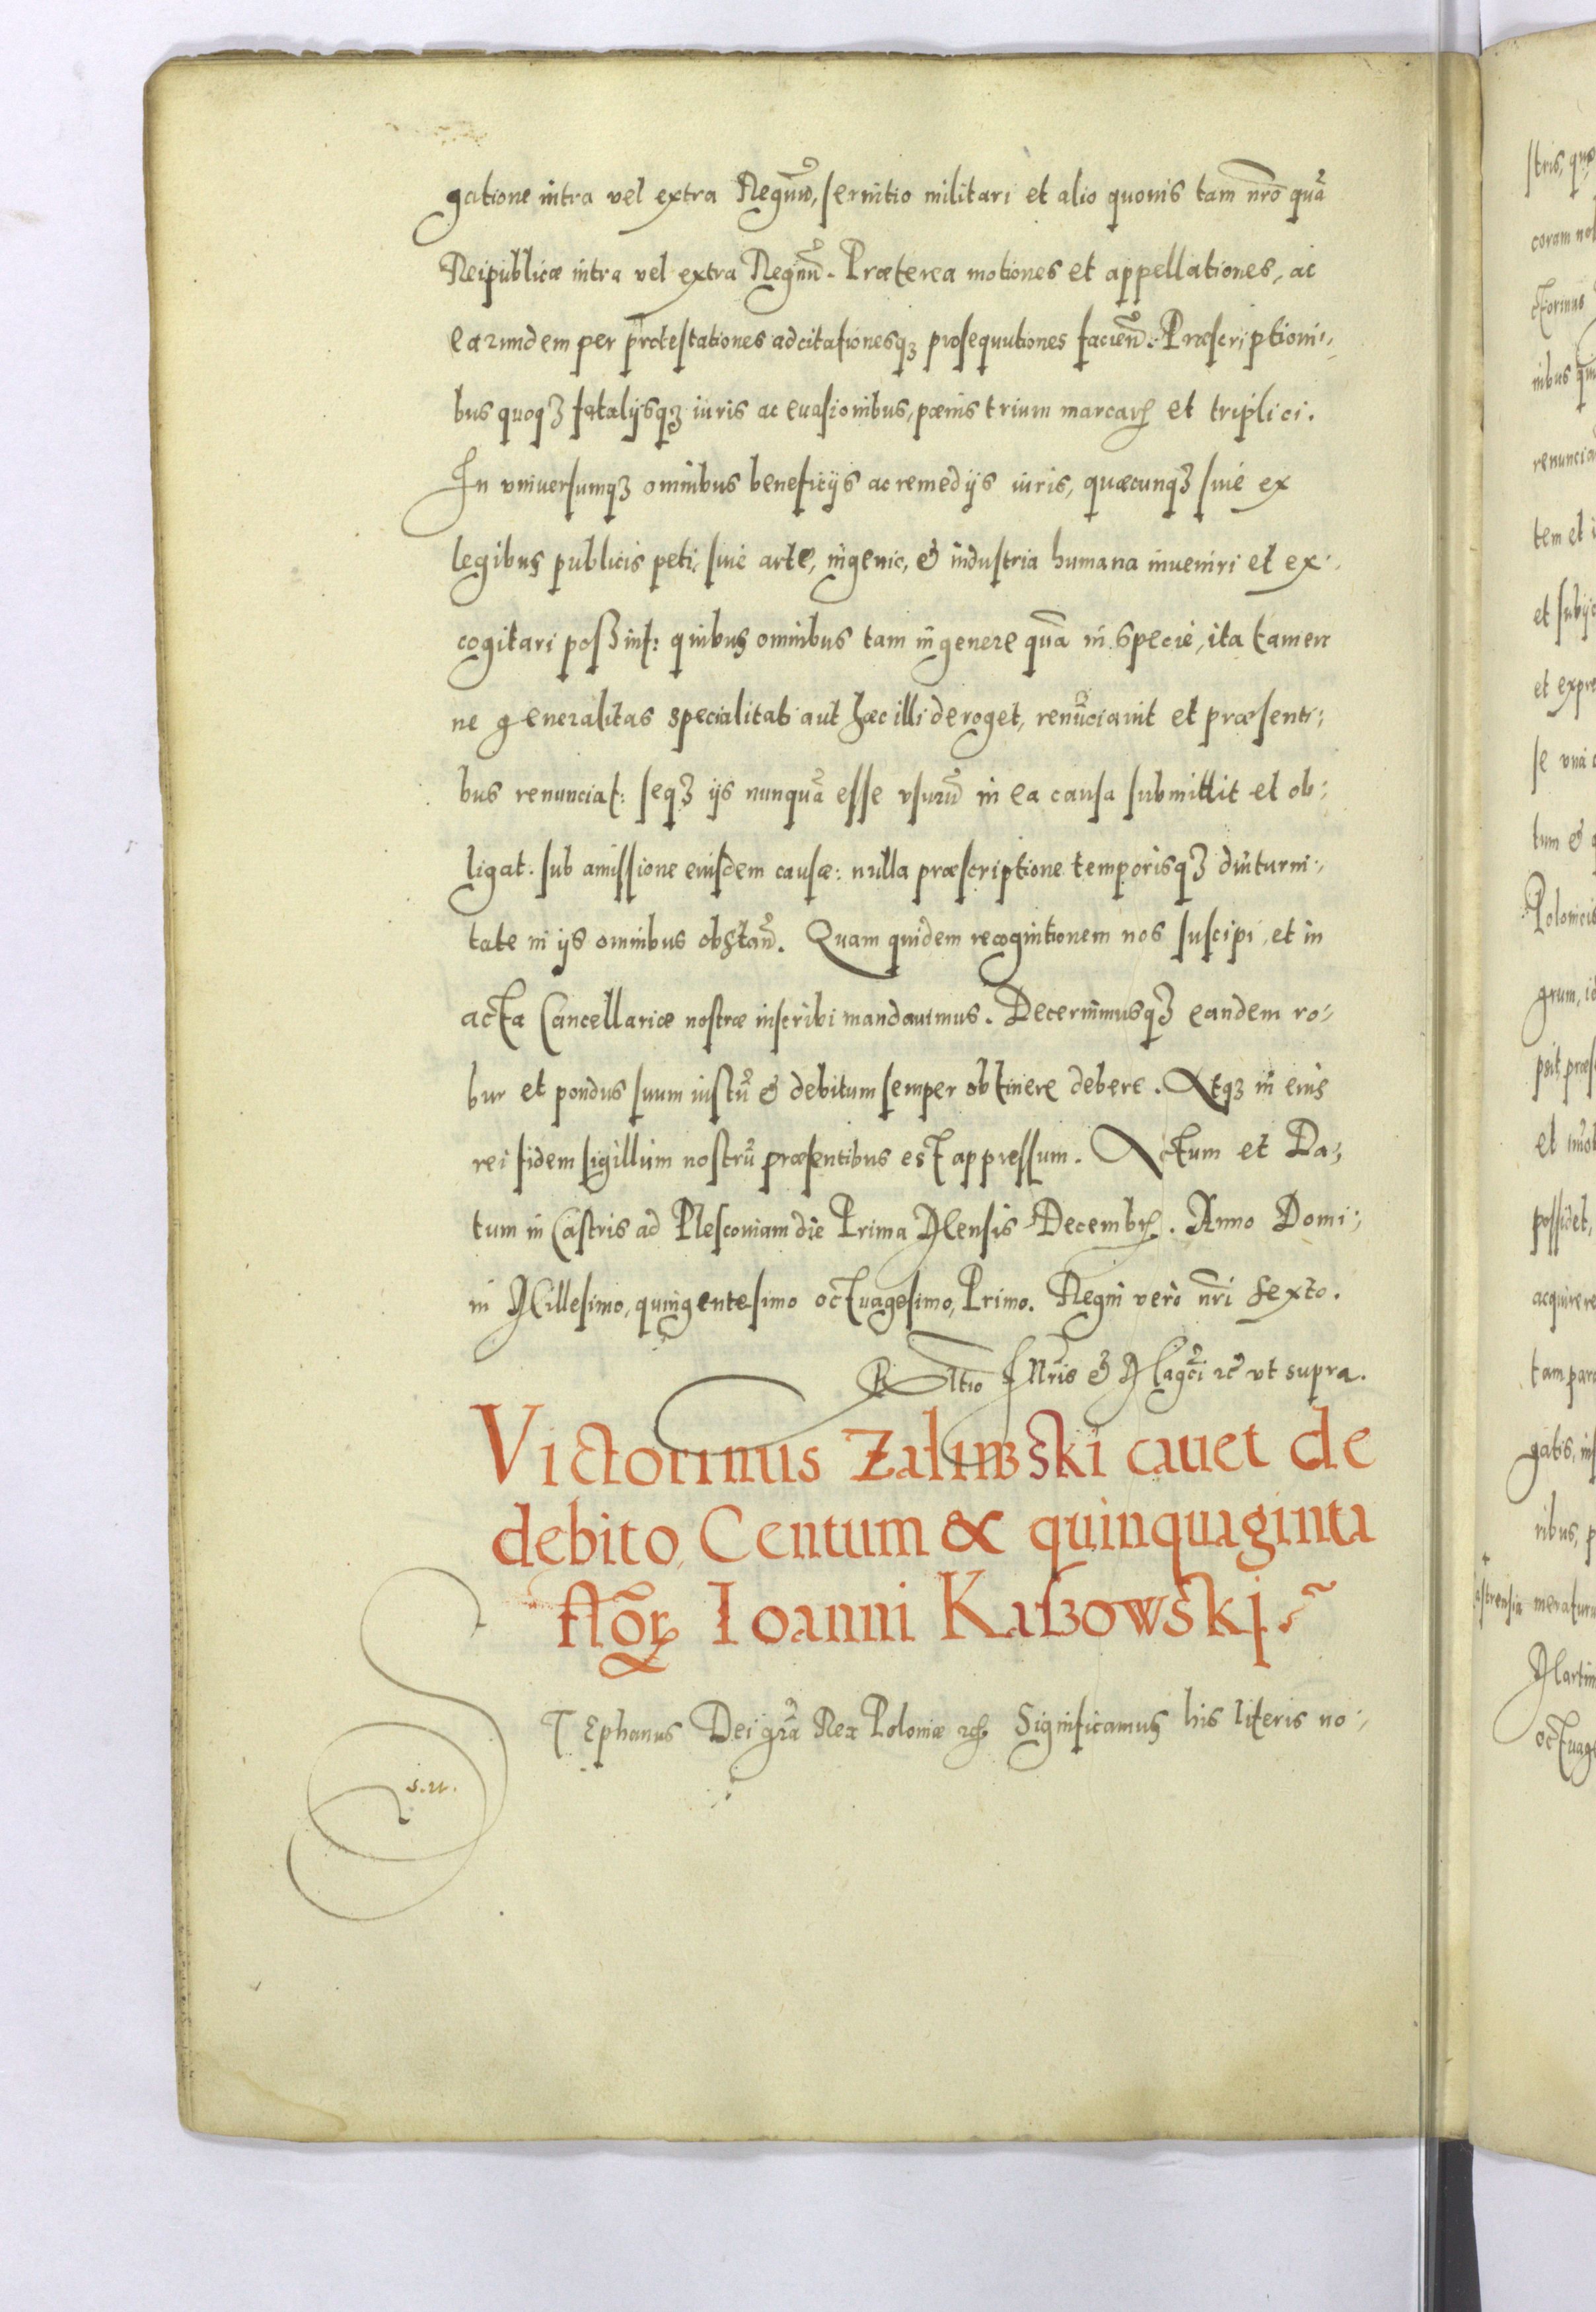 gatione intra vel extra Regnũ, seruitio militari et alio quouis tam nr̃o quã
Reipublicæ intra vel extra Regnũ. Præterea motiones et appellationes, ac
earundem per protestationes adcitationesqꝫ prosequutiones faciend̃. Præscriptioni⸗
bus quoqꝫ fatalijsqꝫ iuris ac euasionibus, pœnis trium marcarꝝ et triplici.
In vniuersumqꝫ omnibus beneficijs ac remedijs iuris, quæcunqꝫ siue ex
legibus publicis peti, siue arte, ingenio, & industria humana inueniri et ex⸗
cogitari poßint: quibus omnibus tam in genere quã in specie, ita tamen
ne generalitas specialitati aut hæc illi deroget, renũciauit et præsenti⸗
bus renunciat: seqꝫ ijs nunquã esse vsurũ in ea causa submittit et ob⸗
ligat. sub amissione eiusdem causæ: nulla præscriptione temporisqꝫ diuturni⸗
tate in ijs omnibus obstan̄. Quam quidem recognitionem nos suscipi, et in
acta Cancellariæ nostræ inscribi mandauimus. Decernimusqꝫ eandem ro⸗
bur et pondus suum iustũ & debitum semper obtinere debere. Atqꝫ in eius
rei fidem sigillum nostrũ præsentibus est appressum. Actum et Da⸗
tum in Castris ad Plescouiam die Prima Mensis Decembrꝭ. Anno Domi⸗
ni Millesimo, quingentesimo octuagesimo, Primo. Regni verò nr̃i sexto.
Rltio Illris & Magci ꝛc̃ vt supra.
Victorinus Zalinski cauet de
debito, Centum & quinquaginta
flõꝝ Ioanni Kaßowski.
STephanus Dei gr̃a Rex Poloniæ ꝛc̃. Significamus his literis no⸗